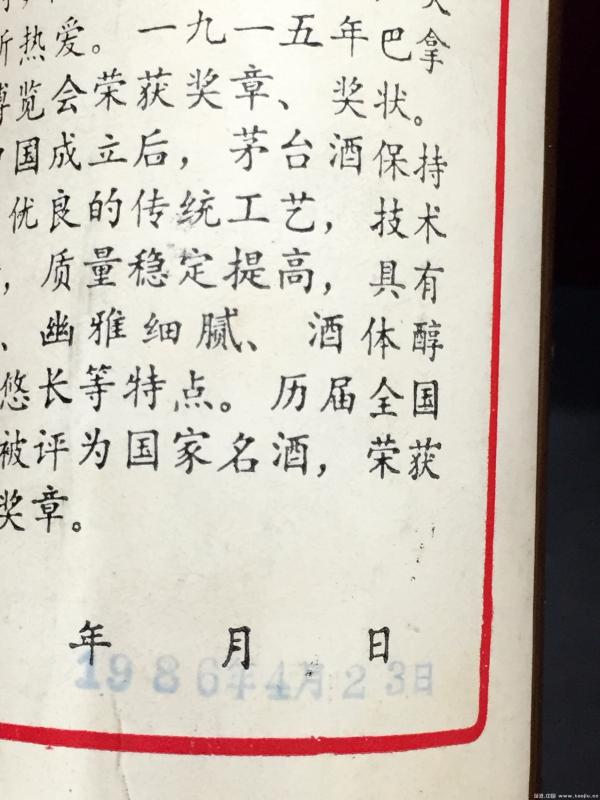 热爱。一九一五年巴拿
博览会荣获奖章、奖状。
国成立后，茅台酒保持
优良的传统工艺，技术
，质量稳定提高，具有
、幽雅细腻、酒体醇
悠长等特点。历届全国
被评为国家名酒，荣获
奖章。
年 月 日
1986年4月23日